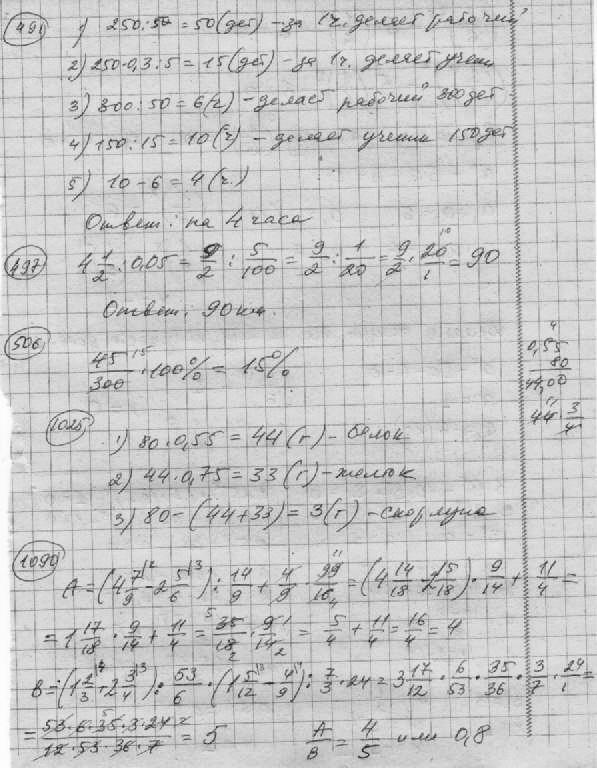 491 1) 250:5 = 50 (дет) – за 1ч. делает рабочий
2) 250·0,3:5 = 15 (дет) – за 1ч. делает учени
3) 300:50 = 6 (ч) – делает рабочий 300 дет
4) 150:15 = 10 (ч) – делает ученик 150 дет
5) 10 – 6 = 4 (ч.)
Ответ: на 4 часа
497 4 1/2 : 0,05 = 9/2 : 5/100 = 9/2 : 1/20 = 9/2 · 20/1 = 90
Ответ: 90 км.
506 45/300 · 100% = 15%
0,55
80
44,00
44 · 3/4
1025 1) 80·0,55 = 44 (г) – белок
2) 44·0,75 = 33 (г) – желток
3) 80 – (44+33) = 3 (г) – скорлупа
1090 A = (4 7/9 – 2 5/6) : 14/9 + 4/9 · 99/16 = (4 14/18 – 2 15/18) · 9/14 + 11/4 =
= 1 17/18 · 9/14 + 11/4 = 35/18 · 9/14 = 5/4 + 11/4 = 16/4 = 4
B = (1 2/3 + 2 3/4) : 53/6 · (1 5/12 – 4/9) : 7/3 · 24 = 3 17/12 · 6/53 · 35/36 · 3/7 · 24/1 =
= 53·6·35·3·24/12·53·36·7 = 5 A/B = 4/5 или 0,8